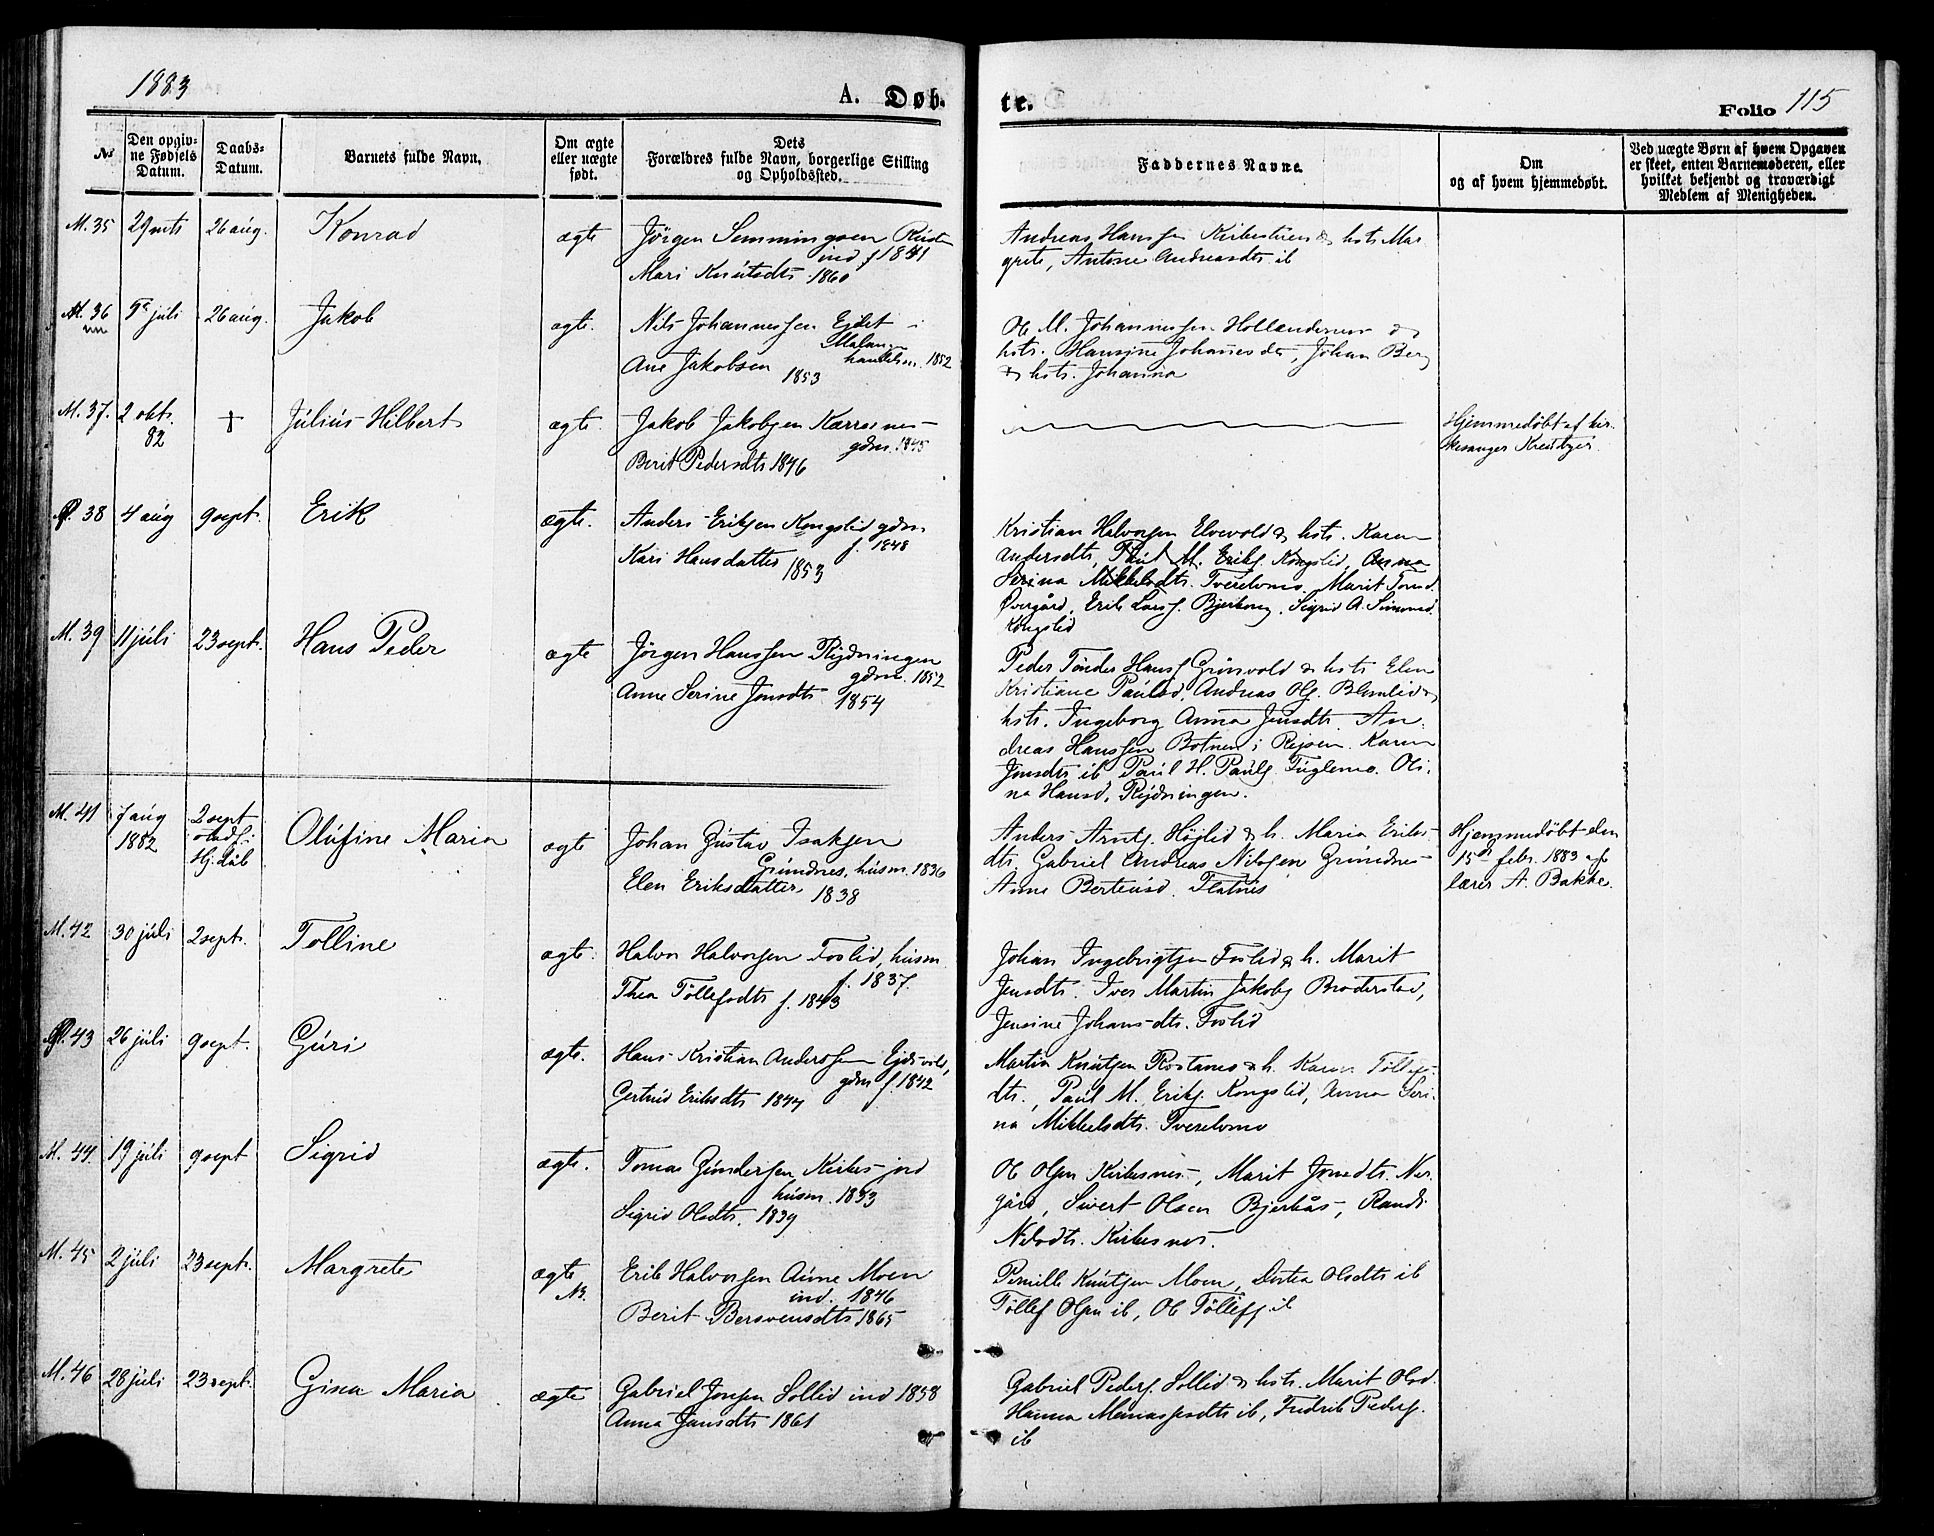 1883
A. Døb-
te.
Folio 115
No
Den opgiv-
ne Fødsels
Datum.
Daabs-
Datum.
Barnets fulde Navn.
Om ægte
eller uægte
født.
Dets
Forældres fulde Navn, borgerlige Stilling
og Opholdssted.
Faddernes Navne.
Om
og af hvem hjemmedøbt.
Ved uægte Børn af hvem Opgaven
er skeet, enten Barnemoderen, eller
hvilket bekjendt og troværdigt
Medlem af Menigheden.
M. 35 29 mts 26 aug. Konrad ægte Jörgen Semmingsen
ind f 1841
Mari Knutsdtr 1860
Andreas Hanssen & hstr Mar-
grete, Antone Andreasdtr ib
M. 36 juli 26 aug. Jakob ægte. Nils Johannessen Ejdet i
Malan-
handelsm. 1852
Ane Jakobsen 1853
Ol. M. Johannessen &
hstr. Hansine Johannesdtr, Johan Berg
& hstr. Johanna
M. 37. 2 okt.
82
Július Hilbert ægte. Jakob Jakobsen Kærresnes
gdm. 1845
Berit Pedersdtr 1846
Hjemmedøbt af kir-
kesanger
38 4 aug 9 sept. Erik ægte. Anders Eriksen Kongslid gdm
f. 1848
Kari Hansdatter 1853
Kristian Halvorsen Elvevold & hstr. Karen
Andersdtr, M. Eriks. Kongslid, Anna
Serina Mikkelsdtr. Tverelvmo, Marit
Övergård, Erik Larss. Bjerkeng, Sigrid A.
Kongslid
M. 39 11 júli 23 sept. Hans Peder ægte Jörgen Hanssen Rydningen
gdm. 1852
Anne Serine Jonsdtr 1854
Peder Tönder Hanss. Grúnvold & hstr Elen
Kristiane Paulsd, Andreas Ols. &
hstr. Ingeborg Anna Jensdtr An-
dreas Hanssen Botnen i Karen
Jensdtr ib Paul H. Pauls. Fúglemo. Oli-
na Hansd. Rydningen.
M. 41 7 aug
1882
2 sept
stadf.
Hj. dåb
Olúfine Maria ægte Johan Gústav Isaksen
Gründnes, húsm. 1836
Elen Eriksdatter 1838
Anders Arnts. Højlid & h. Maria Eriks-
dtr. Gabriel Andreas Nilsen Grúndnes
Anne Flatnes
Hjemmedøbt den
15de febr. 1883 af
lærer A. Bakke.
M. 42 30 júli 2 sept. Tolline ægte. Halvor Halvorsen Foslid, húsm.
f. 1837.
Thea Töllefsdtr f. 1843
Johan Ingebrigtsen Foslid & h. Marit
Jensdtr. Iver Martin Jakobs. Broderstad,
Jensine Johansdtr. Foslid
43 26 júli 9 sept. Gúri ægte. Hans Kristian Anderssen Ejdsvold,
gdm f. 1842
Gertrud Eriksdtr 1847
Martin Knútsen Rostamo & h. Karen Töllefs-
dtr., Paúl M. Eriks. Kongslid, Anna Seri-
na Mikkelsdtr. Tverelvmo
M. 44. 19 júli 9 sept Sigrid ægte. Tomas Gúndersen Kirkesjord
húsm. 1833
Sigrid Olsdtr. 1839
Ol Olsen Kirkesnes, Marit Jonsdtr. Ner-
gård, Sivert Olsen Bjerkås, Randi
Nilsdtr. Kirkesnes.
M. 45 2 júli 23 sept. Margrete ægte
NB.
Erik Halvorsen Aúne Moen
ind. 1846
Berit Bersvensdtr 1865
Pernille Knútsen Moen, Dortea Olsdtr ib
Töllef Olsen ib, Ol Töllefs. ib
M. 46 28 júli 23 sept. Gina Maria ægte Gabriel Jonsen Sollid ind 1858
Anna Jansdtr 1861
Gabriel Peders. Sollid & hstr. Marit Olsd.
Hanna ib, Fredrik Peders.
ib